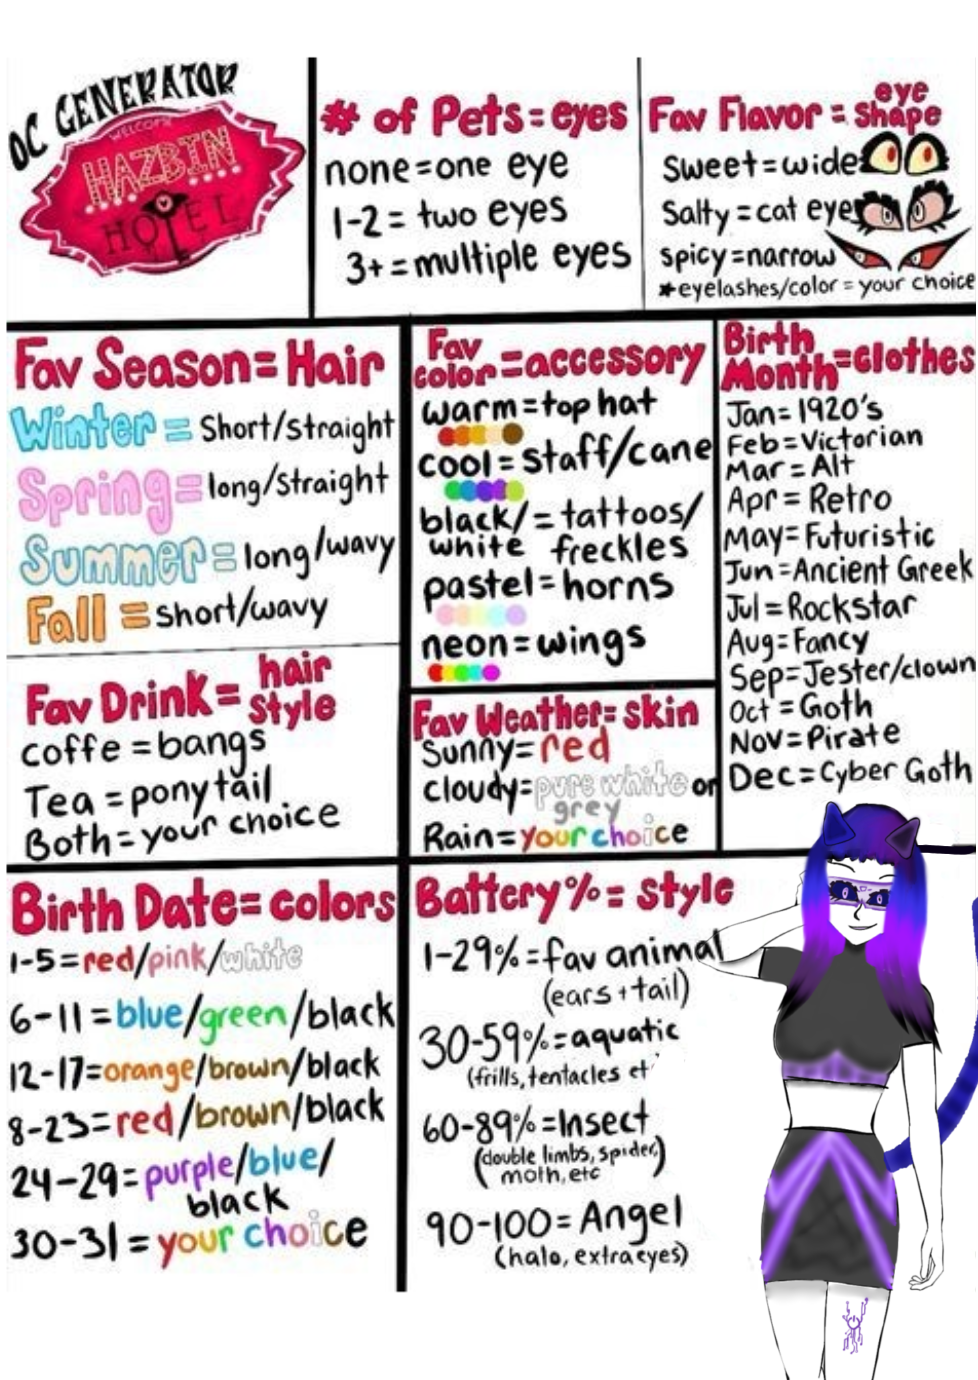 OC GENERATOR
WELCOME
HAZBIN
HOTEL
# of Pets = eyes
none = one eye
1-2 = two eyes
3+ = multiple eyes
Fav Flavor = eye shape
Sweet = wide
Salty = cat eye
spicy = narrow
*eyelashes/color = your choice
Fav Season = Hair
Winter = Short/straight
Spring = long/straight
Summer = long/wavy
Fall = short/wavy
Fav Drink = hair style
coffe = bangs
Tea = ponytail
Both = your choice
Fav color = accessory
warm = top hat
cool = staff/cane
black/white = tattoos/freckles
pastel = horns
neon = wings
Fav Weather = skin
Sunny = red
cloudy = pure white or
grey
Rain = your choice
Birth Month = clothes
Jan = 1920's
Feb = Victorian
Mar = Alt
Apr = Retro
May = Futuristic
Jun = Ancient Greek
Jul = Rockstar
Aug = Fancy
Sep = Jester/clown
Oct = Goth
Nov = Pirate
Dec = Cyber Goth
Birth Date = colors
1-5 = red/pink/white
6-11 = blue/green/black
12-17 = orange/brown/black
8-23 = red/brown/black
24-29 = purple/blue/
black
30-31 = your choice
Battery % = style
1-29% = fav animal
(ears + tail)
30-59% = aquatic
(frills, tentacles et
60-89% = Insect
(double limbs, spider,
moth, etc
90-100 = Angel
(halo, extra eyes)